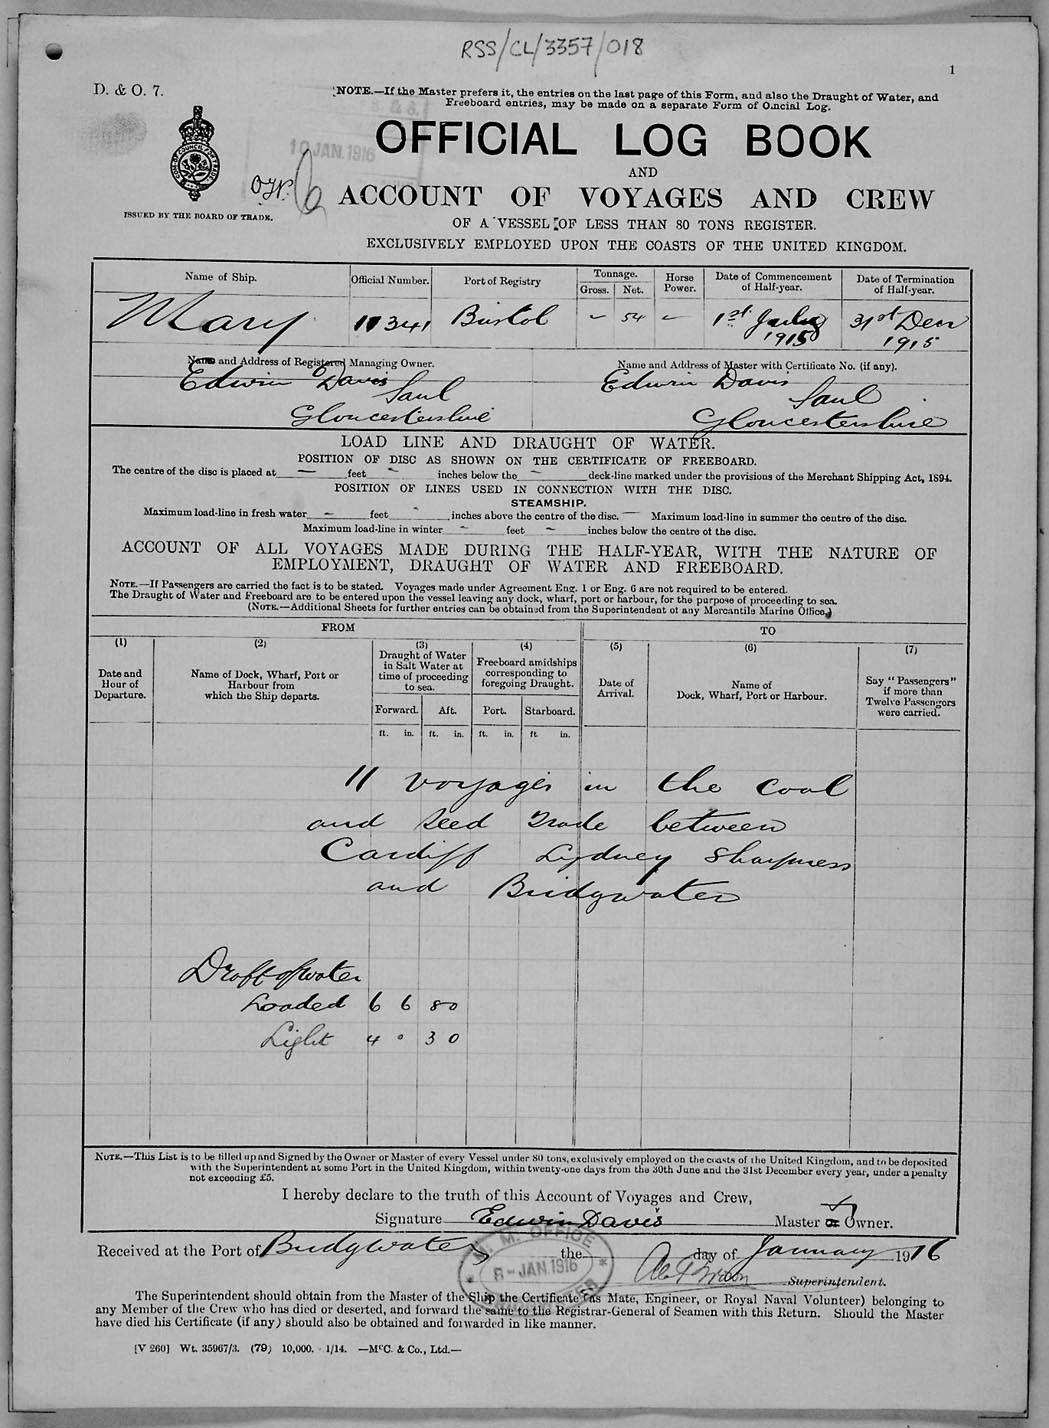 RSS/CL/3357/018
1
D. & O. 7.
NOTE.—If the Master prefers it, the entries on the last page of this Form, and also the Draught of Water, and
Freeboard entries, may be made on a separate Form of Official Log.
10 JAN. 1916
OFFICIAL LOG BOOK
AND
ACCOUNT OF VOYAGES AND CREW
ISSUED BY THE BOARD OF TRADE.
OF A VESSEL OF LESS THAN 80 TONS REGISTER.
EXCLUSIVELY EMPLOYED UPON THE COASTS OF THE UNITED KINGDOM.
Name of Ship. Official Number. Port of Registry Tonnage. Gross. Net. Horse Power. Date of Commencement of Half-year. Date of Termination of Half-year.
Mary 11341 Bristol - 54 - 1st July 1915 31st Decr 1915
Name and Address of Registered Managing Owner. Name and Address of Master with Certificate No. (if any).
Edwin Davis Edwin Davis
Saul Saul
Gloucestershire Gloucestershire
LOAD LINE AND DRAUGHT OF WATER.
POSITION OF DISC AS SHOWN ON THE CERTIFICATE OF FREEBOARD.
The centre of the disc is placed at — feet - inches below the - deck-line marked under the provisions of the Merchant Shipping Act, 1894.
POSITION OF LINES USED IN CONNECTION WITH THE DISC.
STEAMSHIP.
Maximum load-line in fresh water - feet - inches above the centre of the disc. — Maximum load-line in summer the centre of the disc.
Maximum load-line in winter - feet - inches below the centre of the disc.
ACCOUNT OF ALL VOYAGES MADE DURING THE HALF-YEAR, WITH THE NATURE OF
EMPLOYMENT, DRAUGHT OF WATER AND FREEBOARD.
NOTE.—If Passengers are carried the fact is to be stated. Voyages made under Agreement Eng. 1 or Eng. 6 are not required to be entered.
The Draught of Water and Freeboard are to be entered upon the vessel leaving any dock, wharf, port or harbour, for the purpose of proceeding to sea.
(NOTE.—Additional Sheets for further entries can be obtained from the Superintendent of any Mercantile Marine Office.)
FROM TO
(1) (2) (3) (4) (5) (6) (7)
Date and Hour of Departure. Name of Dock, Wharf, Port or Harbour from which the Ship departs. Draught of Water in Salt Water at time of proceeding to sea. Freeboard amidships corresponding to foregoing Draught. Date of Arrival. Name of Dock, Wharf, Port or Harbour. Say "Passengers" if more than Twelve Passengers were carried.
Forward. Aft. Port. Starboard.
ft. in. ft. in. ft. in. ft. in.
11 voyages in the coal
and seed Trade between
Cardiff Lydney Sharpness
and Bridgwater
Draft of water
Loaded 6 6 8 0
Light 4 0 3 0
NOTE.—This List is to be filled up and Signed by the Owner or Master of every Vessel under 80 tons, exclusively employed on the coasts of the United Kingdom, and to be deposited
with the Superintendent at some Port in the United Kingdom, within twenty-one days from the 30th June and the 31st December every year, under a penalty
not exceeding £5.
I hereby declare to the truth of this Account of Voyages and Crew,
Signature Edwin Davis Master or Owner.
Received at the Port of Bridgwater the day of January 1916
M. M. OFFICE
8 - JAN. 1916
BRIDGWATER
Superintendent.
The Superintendent should obtain from the Master of the Ship the Certificate (as Mate, Engineer, or Royal Naval Volunteer) belonging to
any Member of the Crew who has died or deserted, and forward the same to the Registrar-General of Seamen with this Return. Should the Master
have died his Certificate (if any) should also be obtained and forwarded in like manner.
[V 260] Wt. 35967/3. (79) 10,000. 1/14. —McC. & Co., Ltd.—